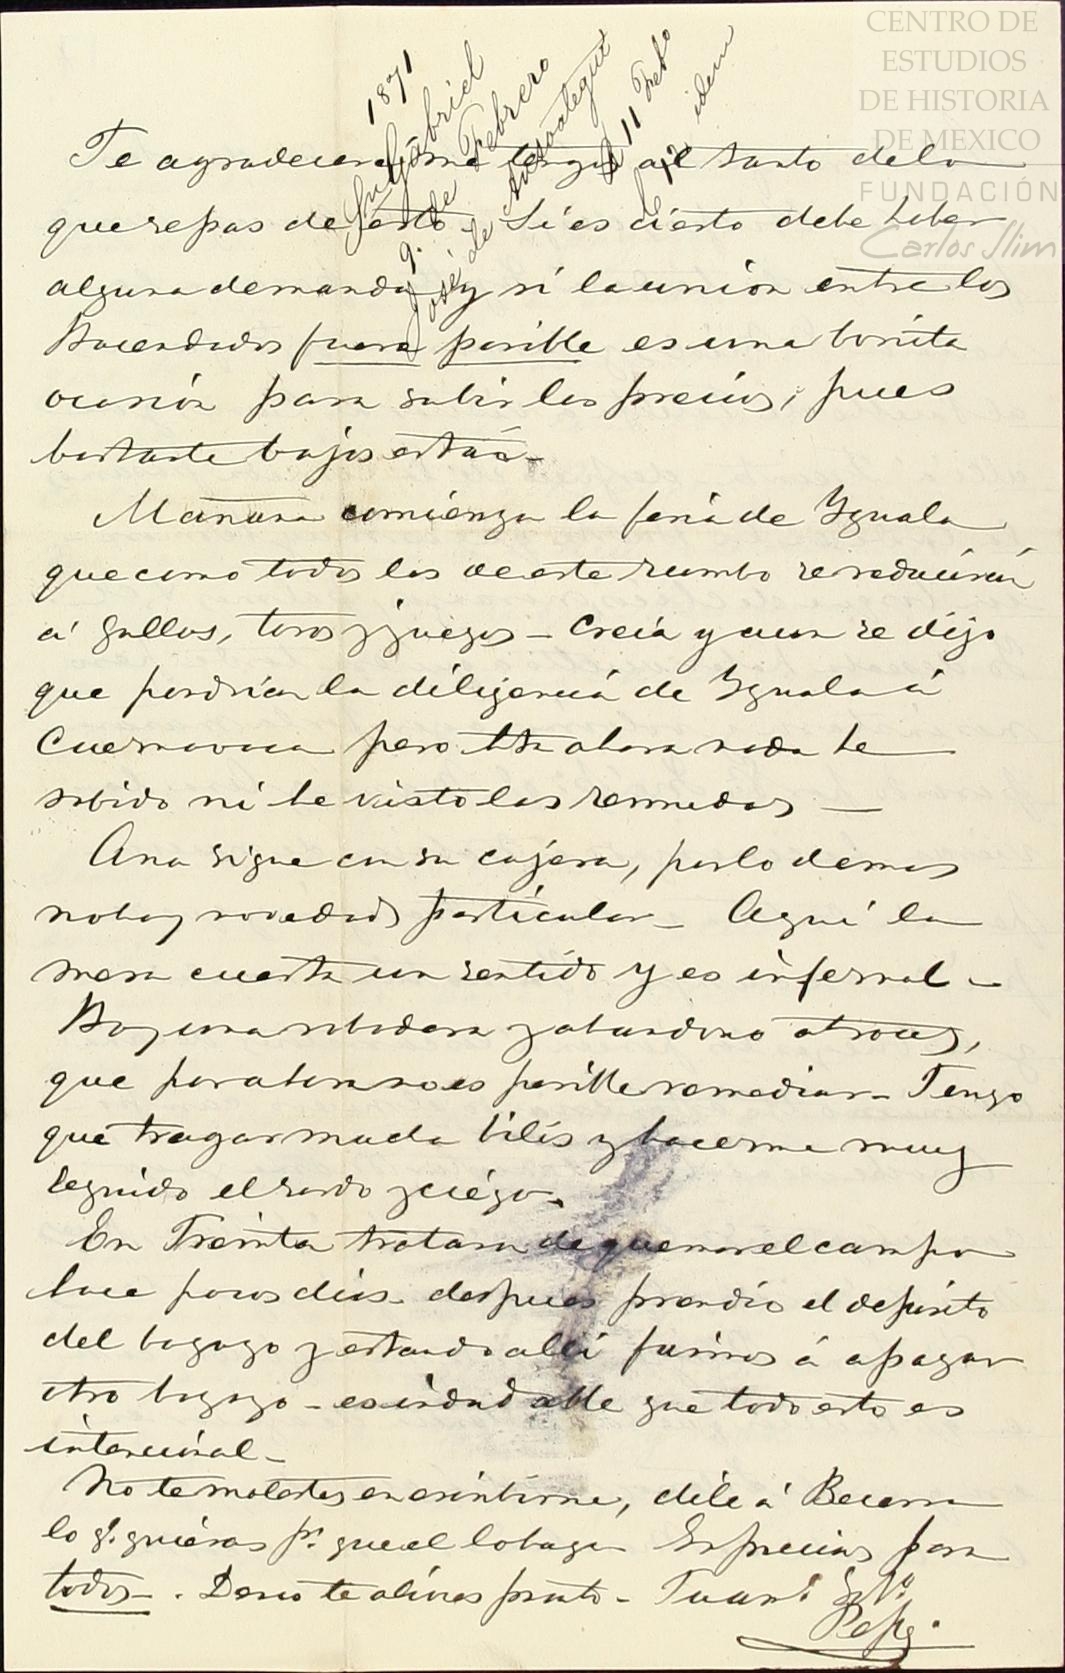 CENTRO DE
ESTUDIOS
DE HISTORIA
DE MEXICO
FUNDACIÓN
Carlos Slim
1871
Sn Gabriel
9. de Febrero
José de Ansoategui
R 11 Febo
C idem
Te agradeceré me tengas al tanto de lo
que sepas de esto. Si es cierto debe haber
alguna demanda y si la union entre los
Hacendados fuera posible es una bonita
ocasión para subir los precios, pues
bastante bajos están_
Mañana comienza la feria de Yguala
que como todas las de este rumbo se reducirán
á gallos, toros y juegos_ Creia y aun se dijo
que pondrian la diligencia de Yguala á
Cuernavaca pero hta ahora nada he
sabido ni he visto las remudas_
Ana sigue con su cojera, por lo demas
no hay novedad particular_ Aqui la
mesa cuesta un sentido y es infernal_
Hay una robadera y abandono atroces,
que por ahora no es posible remediar_ Tengo
que tragar mucha bilis y hacerme muy
seguido el sordo y ciego_
En Treinta trataron de quemar el campo
hace pocos dias despues prendio el deposito
del bagazo y estando alli fuimos á apagar
otro bagazo_ es indudable que todo esto es
intencional_
No te molestes en escribirme, dile á Becerra
lo q. quieras pa. que el lo haga Expresiones para
todos_. Deseo te alivies pronto_ Tu am
Pepe.